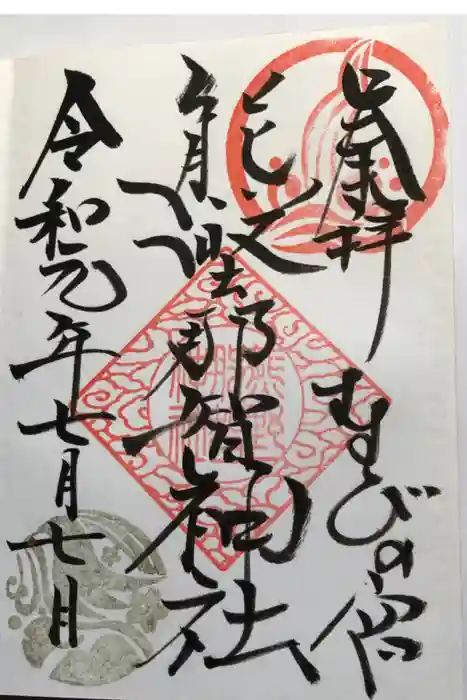 奉拝 むすびの宮
熊野那智神社
令和元年七月七日